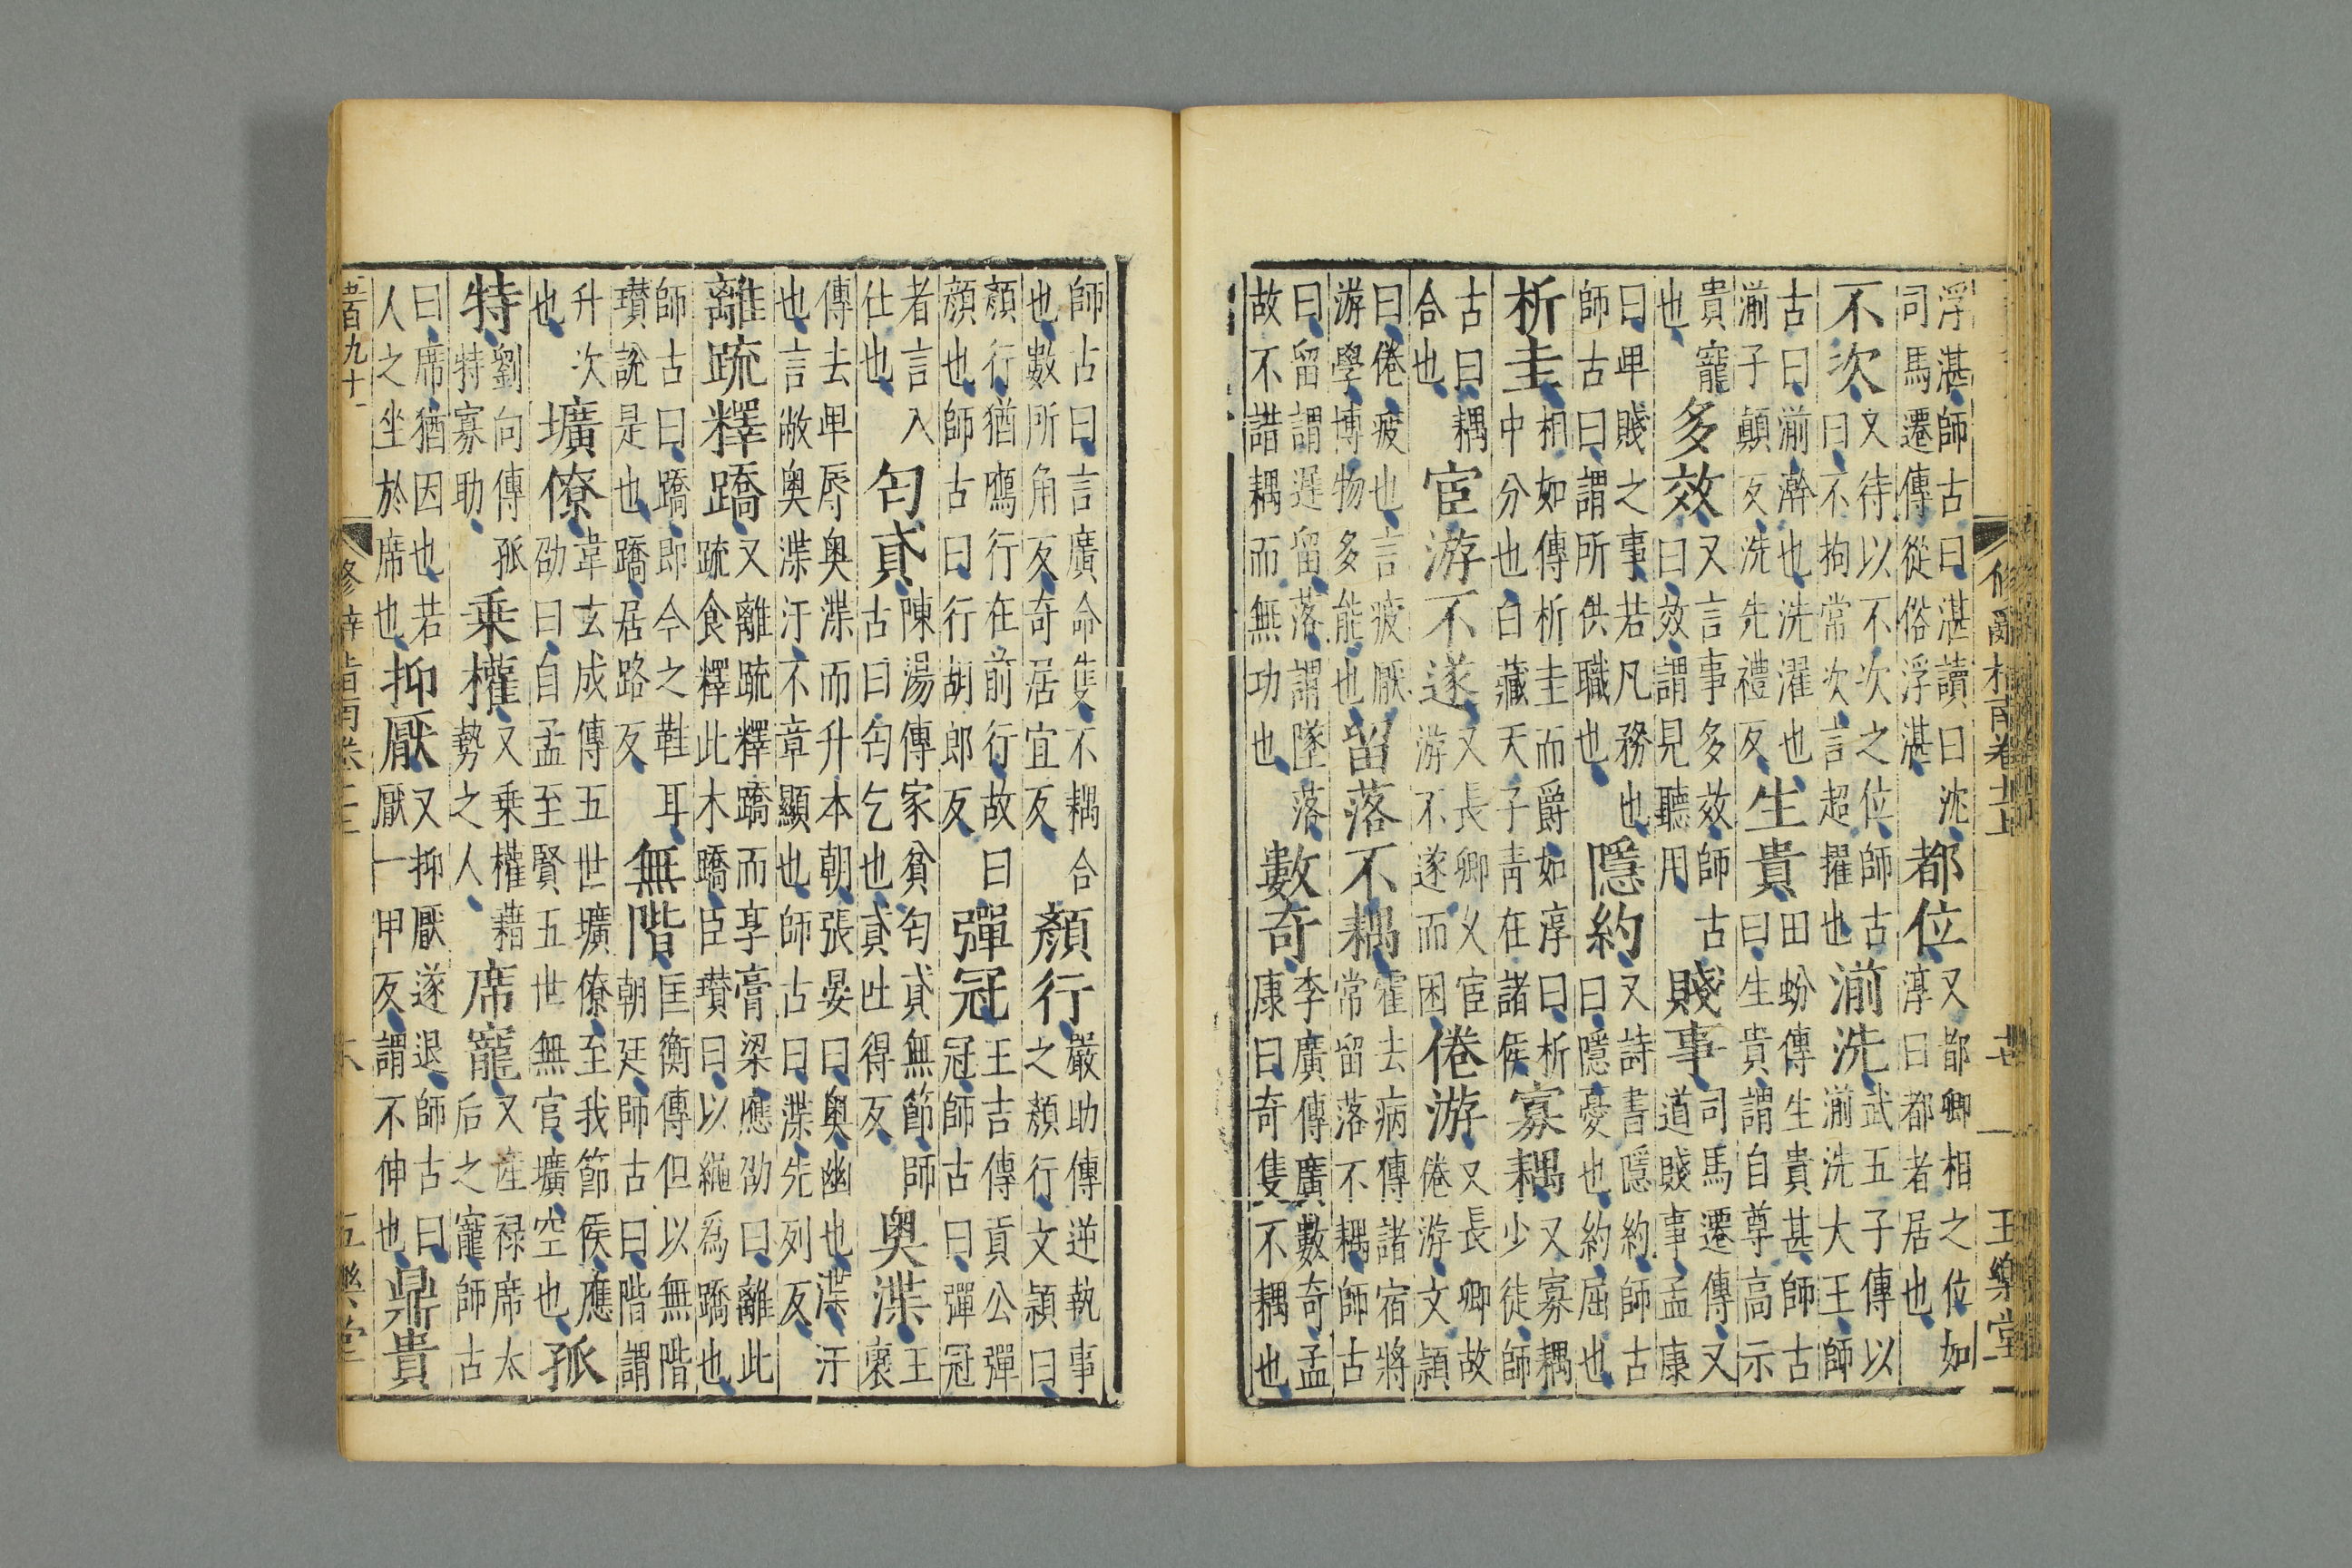 浮湛師古曰湛讀曰沈司馬遷傳從俗浮湛都位又都卿相之位如淳曰都者居也
不次又待以不次之位師古曰不拘常次言超擢也湔洗武五子傳以湔洗大王師
古曰湔澣也洗濯也湔子顛反洗先禮反生貴田蚡傳生貴甚師古曰生貴謂自尊高示
貴寵也多效又言事多效師古曰效謂見聽用賤事司馬遷傳又道賤事孟康
曰卑賤之事若凡務也師古曰謂所供職也隱約又詩書隱約師古曰隱憂也約屈也
析圭相如傳析圭而爵如淳曰析中分也白藏天子青在諸侯寡耦又寡耦少徒師
古曰耦合也宦游不遂又長卿乆宦游不遂而困倦游又長卿故倦游文穎
曰倦疲也言疲厭游學博物多能也留落不耦霍去病傳諸宿將常留落不耦師古
曰留謂遲留落謂墜落故不諧耦而無功也數奇李廣傳廣數奇孟康曰奇隻不耦也
師古曰言廣命隻不耦合也數所角反奇居宜反顏行嚴助傳逆執事之顏行文穎曰
顏行猶鴈行在前行故曰顏也師古曰行胡郎反彈冠王吉傳貢公彈冠師古曰彈冠
者言入仕也匄貣陳湯傳家貧匄貣無節師古曰匄乞也貣吐得反奧渫王褒
傳去卑辱奧渫而升本朝張晏曰奧幽也渫汙也言敝奧渫汙不章顯也師古曰渫先列反
離疏釋蹻又離疏釋蹻而享膏梁應劭曰離此疏食釋此木蹻臣瓚曰以繩爲蹻也
師古曰蹻即今之鞋耳瓚說是也蹻居路反無階匡衡傳但以無階朝廷師古曰階謂
升次也壙僚韋玄成傳五世壙僚至我節侯應劭曰自孟至賢五世無官壙空也孤
特劉向傳孤特寡助乗權又乗權藉勢之人席寵又産祿席太后之寵師古
曰席猶因也若人之坐於席也抑厭又抑厭遂退師古曰厭一甲反謂不伸也鼎貴